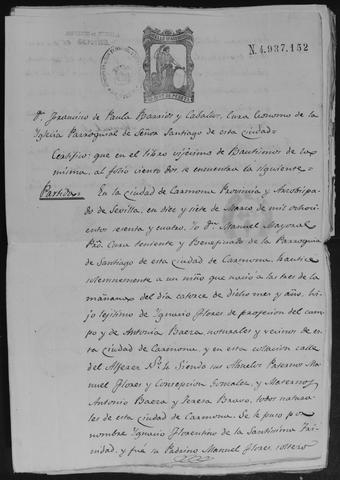 N. 4.937.152
Dn. Francisco de Paula Barrios y Caballos, Cura Economo de la
Iglesia Parroquial de Señor Santiago de esta ciudad
Certifico: que en el libro vijésimo de Bautismos de la
misma, al folio ciento dos se encuentra la siguiente
Partida En la ciudad de Carmona Provincia y Arzobispa
do de Sevilla, en diez y siete de Marzo de mil ochocien
tos sesenta y cuatro, Yo Dn. Manuel Mayoral
Pro. Cura teniente y Beneficiado de la Parroquia
de Santiago de esta ciudad de Carmona, bautice
solemnemente a un niño que nacio a las tres de la
mañana del dia catorce de dicho mes y año, hi
jo lejitimo de Ygnacio Flores de profesion del cam
po y de Antonia Baera, naturales y vecinos de es
ta ciudad de Carmona, y en esta colacion calle
del Alferez N.º 4. Siendo sus Abuelos Paternos Ma
nuel Flores y Concepcion Gonzalez, y Maternos
Antonio Baera y Teresa Bravo, todos natura
les de esta ciudad de Carmona. Se le puso por
nombre Ygnacio Florentino de la Santisima Tri
nidad, y fué su Padrino Manuel Flores soltero